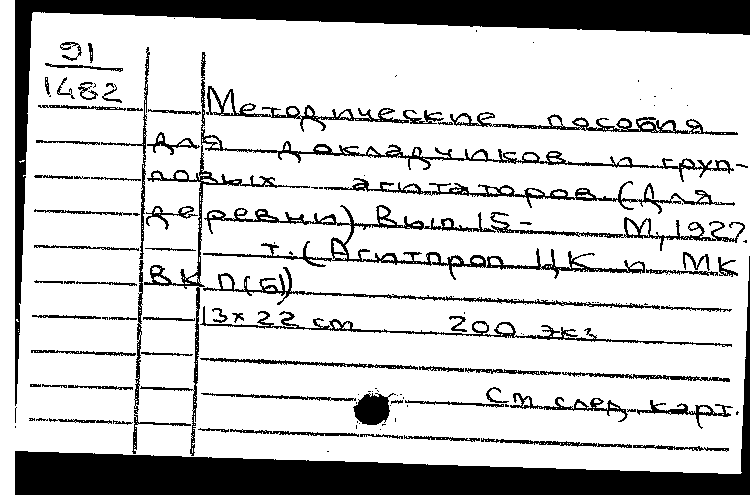 91
1482
Методические пособия
для докладчиков и груп-
повых агитаторов (для
деревни). Вып. 15- М., 1927.
т. (Агитпроп ЦК и МК
ВКП(б))
13x22 см 200 экз
См след. карт.